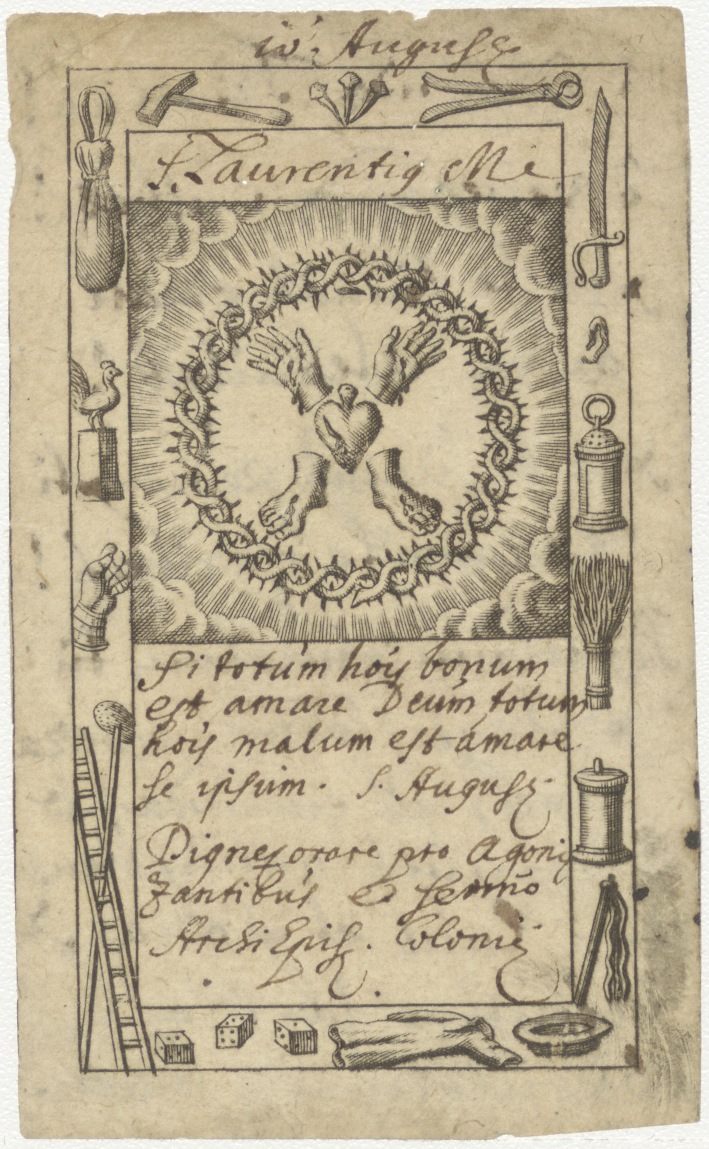 10. Augusti
S. Laurentiq Me
Si totum hois bonum
est amare Deum totum
hois malum est amare
se ipsum. S. August
Digneq orare pro Agoni
zantibus & sermo
Archi Epis. Coloni